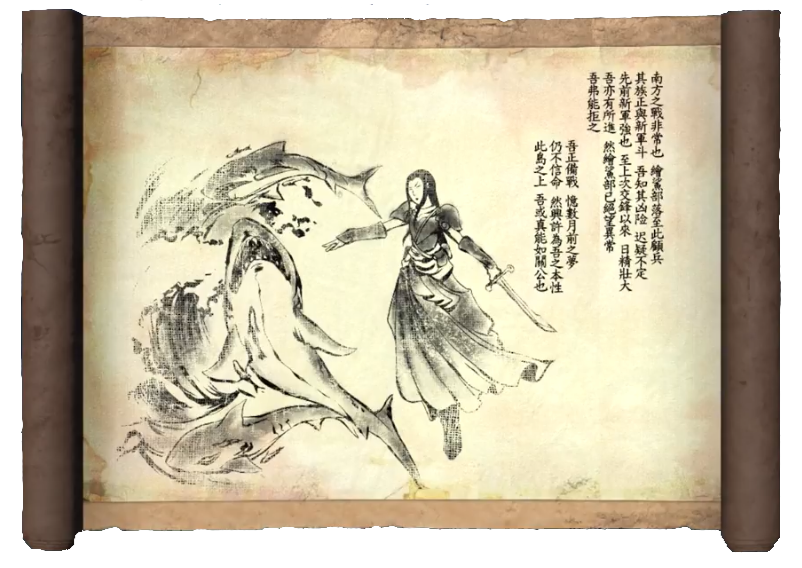 南方之戰非常也 繪鯊部落至此顧兵
其族正與新軍斗 吾知其凶險 迟疑不定
先前新軍強也 至上次交鋒以來 日精壯大
吾亦有所進 然繪鯊部已絕望異常
吾弗能拒之
吾正備戰 憶數月前之夢
仍不信命 然興許為吾之本性
此島之上 吾或真能如關公也